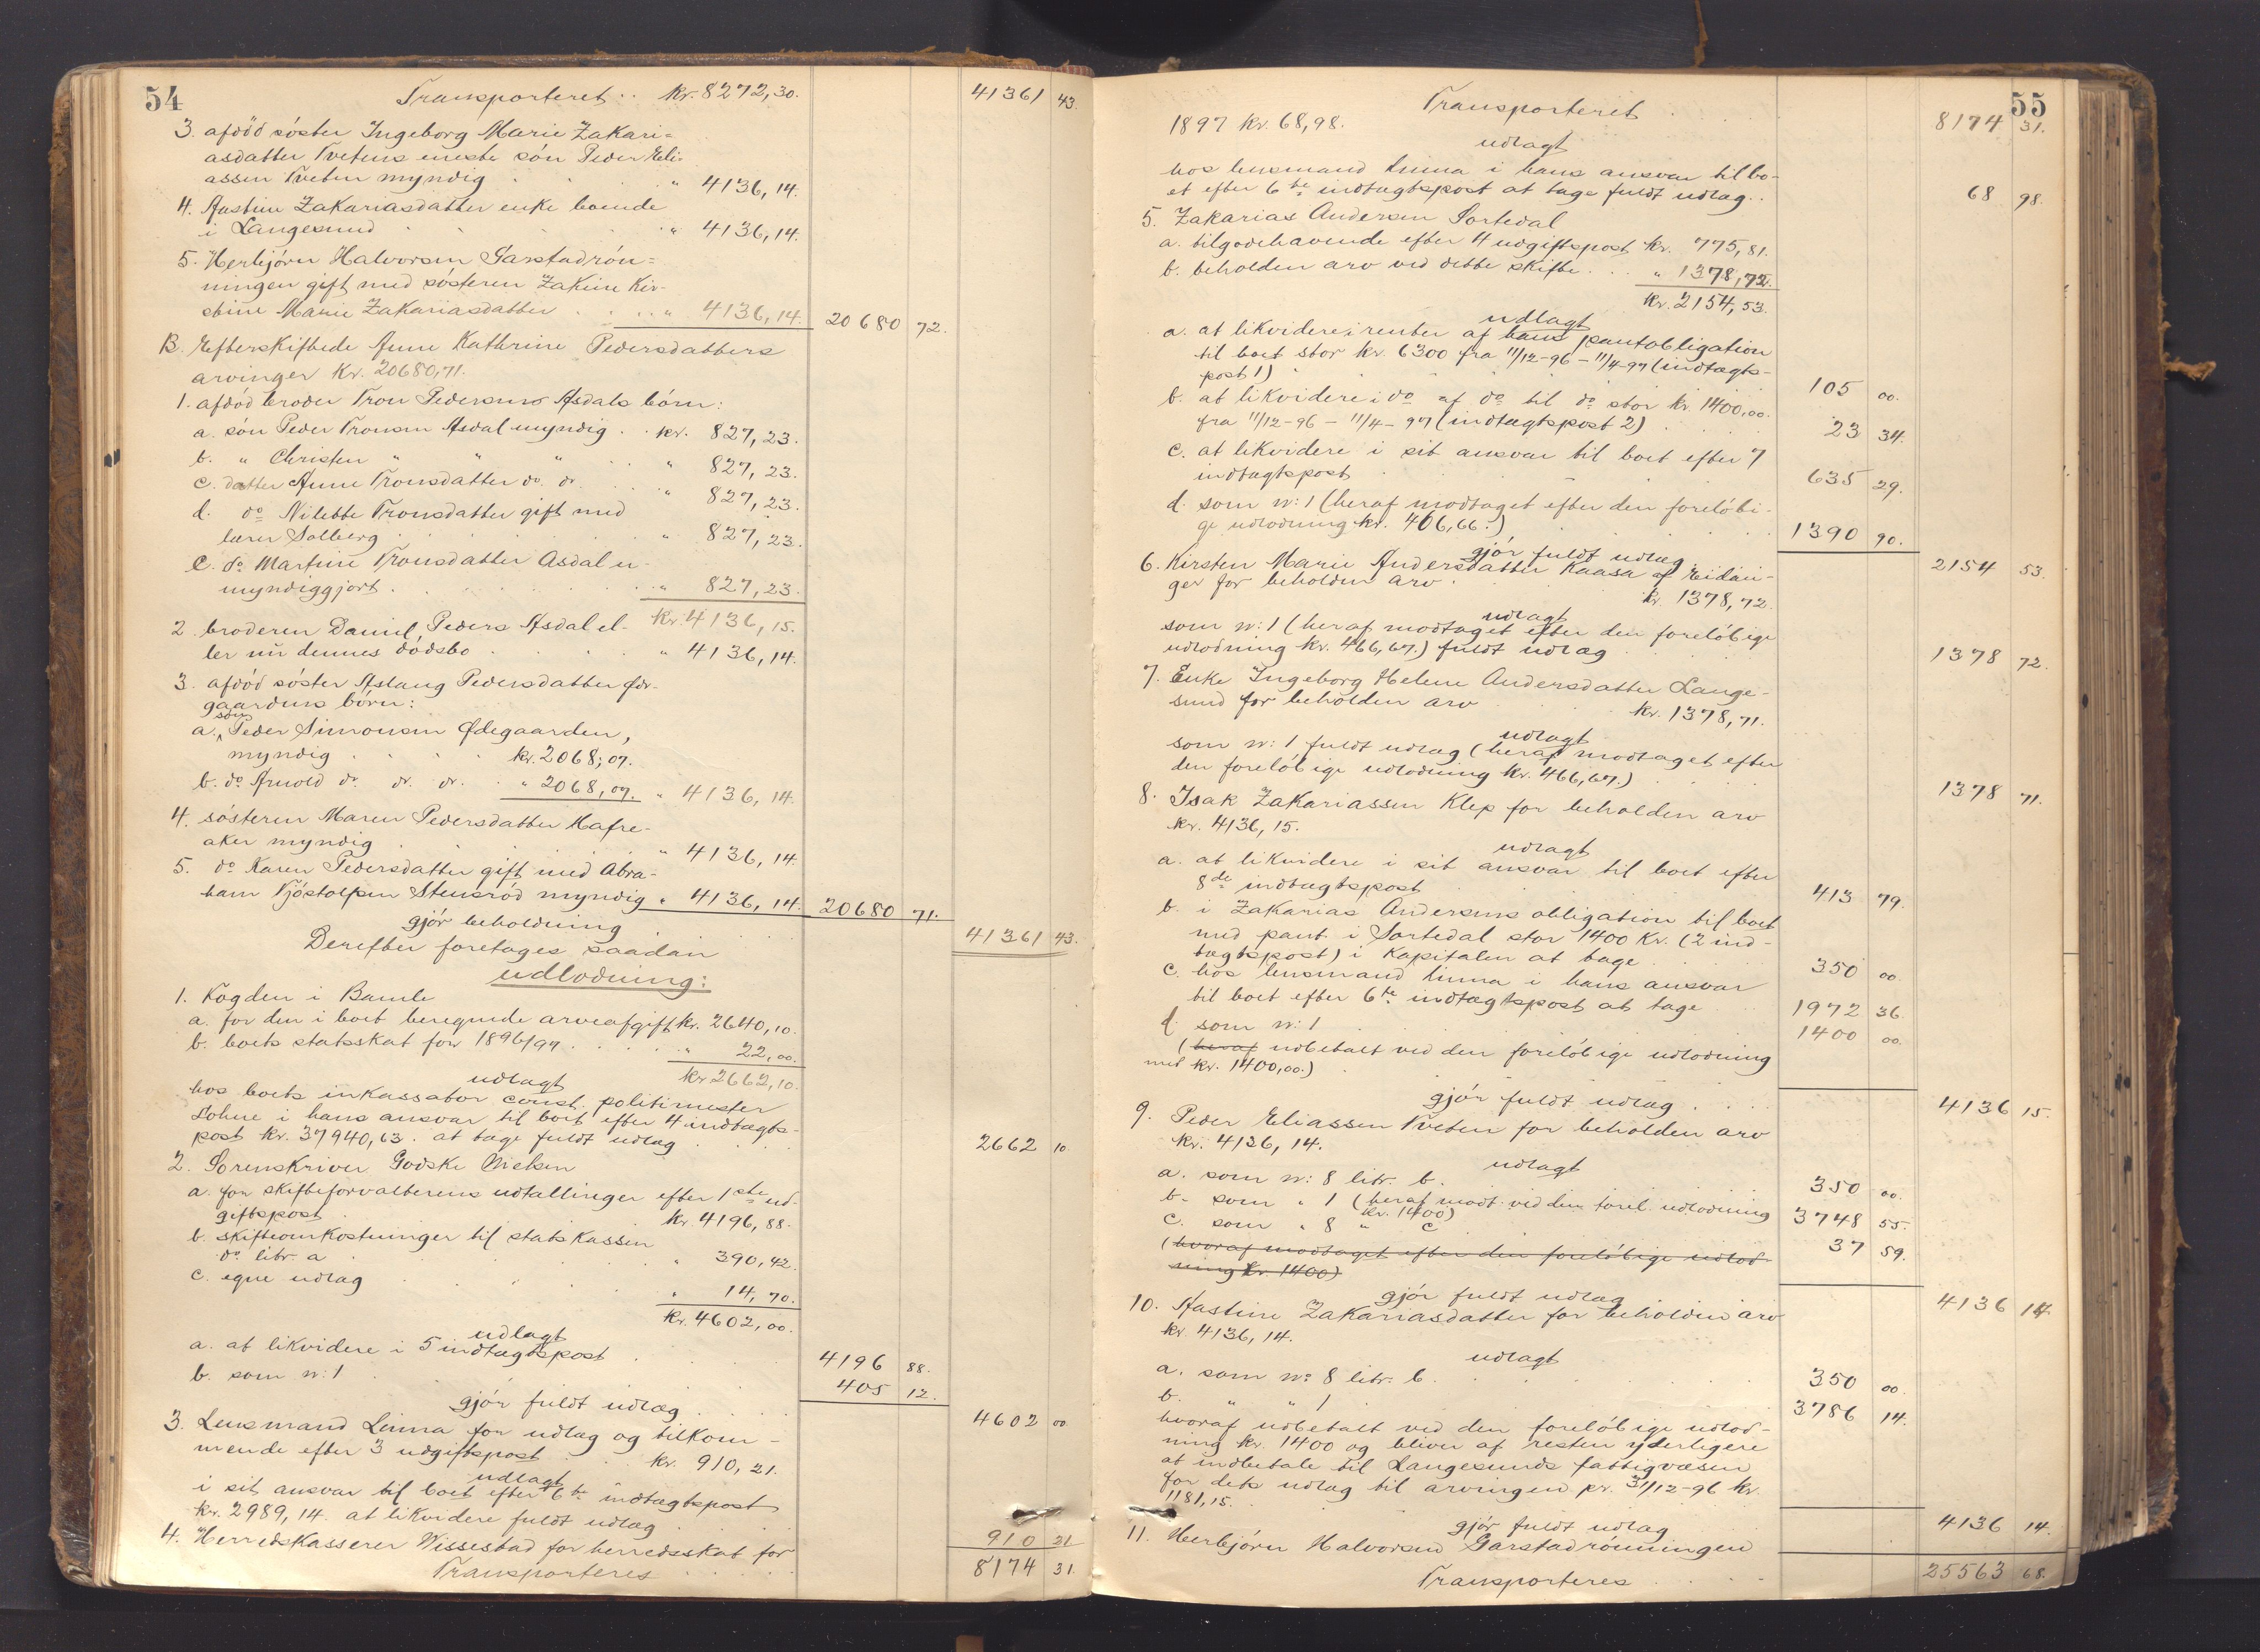 54
Transporteret .. kr. 8272,30. 41361 43.
3. afdöd söster Ingeborg Marie Zakari=
asdatter Tvetens eneste sön Peder Eli-
assen Tveten myndig . . " 4136,14.
4. Aastine Zakariasdatter enke boende
i Langesund . . . " 4136,14.
5. Herbjörn Halvorsen Garstadrön=
ningen gift med sösteren Zakine Kir-
stine Marie Zakariasdatter . . " 4136,14. 20680 72.
B. Efterskiftede Anne Kathrine Pedersdatters
arvinger kr. 20680,71.
1. afdöd broder Tron Pedersens Asdals börn:
a. sön Peder Tronsen Asdal myndig . . kr. 827,23.
b. " Christen " " " . . " 827,23.
c. datter Anne Tronsdatter do. do. . . " 827,23.
d. do Nilette Tronsdatter gift med
lærer Solberg . . . " 827,23.
e. do Martine Tronsdatter Asdal u-
myndiggjort . . . " 827,23.
kr. 4136,15.
2. broderen Daniel Peders Asdal el-
ler nu dennes dödsbo . . . " 4136,14.
3. afdöd söster Aslaug Pedersdatter Øde-
gaardens börn:
a. sön Peder Simonsen Ødegaarden,
myndig . . . kr. 2068,07.
b. do Arnold do. do. do. . " 2068,07. " 4136,14.
4. sösteren Maren Pedersdatter Hafre-
aker myndig . . . " 4136,14.
5. do Karen Pedersdatter gift med Abra-
ham Tjöstolfsen Stensröd myndig " 4136,14. 20680 71.
gjör beholdning . . 41361 43.
Derefter foretages saadan
udlodning:
1. Fogden i Bamle
a. for den i boet beregnede arveafgift kr. 2640,10.
b. boets statsskat for 1896/97 . . . " 22,00.
kr. 2662,10.
udlagt
hos boets inkassator const. politimester
Lohne i hans ansvar til boet efter 4 indtægts-
post kr. 37940,63. at tage fuldt udlæg . . 2662 10.
2. Sorenskriver Godske Nielsen
a. for skifteforvalterens udtællinger efter 1ste ud-
giftspost . . kr. 4196,88.
b. skifteomkostninger til statskassen
do litr. a . . " 390,42.
c. egne udlæg . . . " 14,70.
kr. 4602,00.
udlagt
a. at likvidere i 5 indtægtspost . . 4196 88.
b. som n: 1 . . 405 12.
gjör fuldt udlæg . . 4602 00.
3. Lensmand Linna for udlæg og tilkom-
mende efter 3 udgiftspost . . kr. 910,21.
udlagt
i sit ansvar til boet efter 6te indtægtspost
kr. 2989,14. at likvidere fuldt udlæg . . . 910 21.
4. Herredskasserer Wissestad for herredsskat for
Transporteres . . . 8174 31.
55
Transporteret . . . 8174 31.
1897 kr. 68,98.
udlagt
hos lensmand Linna i hans ansvar til bo-
et efter 6te indtægtspost at tage fuldt udlæg . . 68 98.
5. Zakarias Andersen Sortedal
a. tilgodehavende efter 4 udgiftspost kr. 775,81.
b. beholden arv ved dette skifte . . " 1378,72.
kr. 2154,53.
udlagt
a. at likvidere i renter af hans pantobligation
til boet stor kr. 6300 fra 11/12-96 - 11/4-97 (indtægts-
post 1) . . . 105 00.
b. at likvidere i do af do til do stor kr. 1400,00.
fra 11/12-96 - 11/4-97 (indtægtspost 2) . . 23 34.
c. at likvidere i sit ansvar til boet efter 7
indtægtspost . . 635 29.
d. som n: 1 (heraf modtaget efter den forelöbi-
ge udlodning kr. 466,66.) . . . 1390 90.
gjör fuldt udlæg . . 2154 53.
6. Kirsten Marie Andersdatter Kaasa af Eidan-
ger for beholden arv . . . kr. 1378,72.
udlagt
som n: 1 (heraf modtaget efter den forelöbige
udlodning kr. 466,67.) fuldt udlæg . . 1378 72.
7. Enke Ingeborg Helene Andersdatter Lange-
sund for beholden arv . . kr. 1378,71.
udlagt
som n: 1 fuldt udlæg (heraf modtaget efter
den forelöbige udlodning kr. 466,67.) . . . 1378 71.
8. Isak Zakariassen Klep for beholden arv
kr. 4136,15.
udlagt
a. at likvidere i sit ansvar til boet efter
8de indtægtspost . . . 413 79.
b. i Zakarias Andersens obligation til boet
med pant i Sortedal stor 1400 kr. (2 ind-
tægtspost) i kapitalen at tage . . 350 00.
c. hos lensmand Linna i hans ansvar
til boet efter 6te indtægtspost at tage . . 1972 36.
d. som n: 1 . . 1400 00.
(heraf udbetalt ved den forelöbige udlodning
med kr. 1400,00.)
gjör fuldt udlæg . . . 4136 15.
9. Peder Eliassen Tveten for beholden arv
kr. 4136,14.
udlagt
a. som n: 8 litr. b. . . . 350 00.
b. som " 1 (heraf modt. ved den forel. udlodning 3748 55.
kr. 1400)
c. som " 8 " c . . 37 59.
(hvoraf modtaget efter den forelöbige udlod-
ning kr. 1400)
gjör fuldt udlæg . . 4136 14.
10. Aastine Zakariasdatter for beholden arv
kr. 4136,14.
udlagt
a. som no 8 litr. b. . . . 350 00.
b. " " 1 . . . 3786 14.
hvoraf udbetalt ved den forelöbige udlod-
ning kr. 1400 og bliver af resten yderligere
at indbetale til Langesunds fattigvæsen
for dets udlæg til arvingen pr. 31/12-96 kr.
1181,15.
gjör fuldt udlæg . . . 4136 14.
11. Herbjörn Halvorsen Garstadrönningen
Transporteres . . . 25563 68.